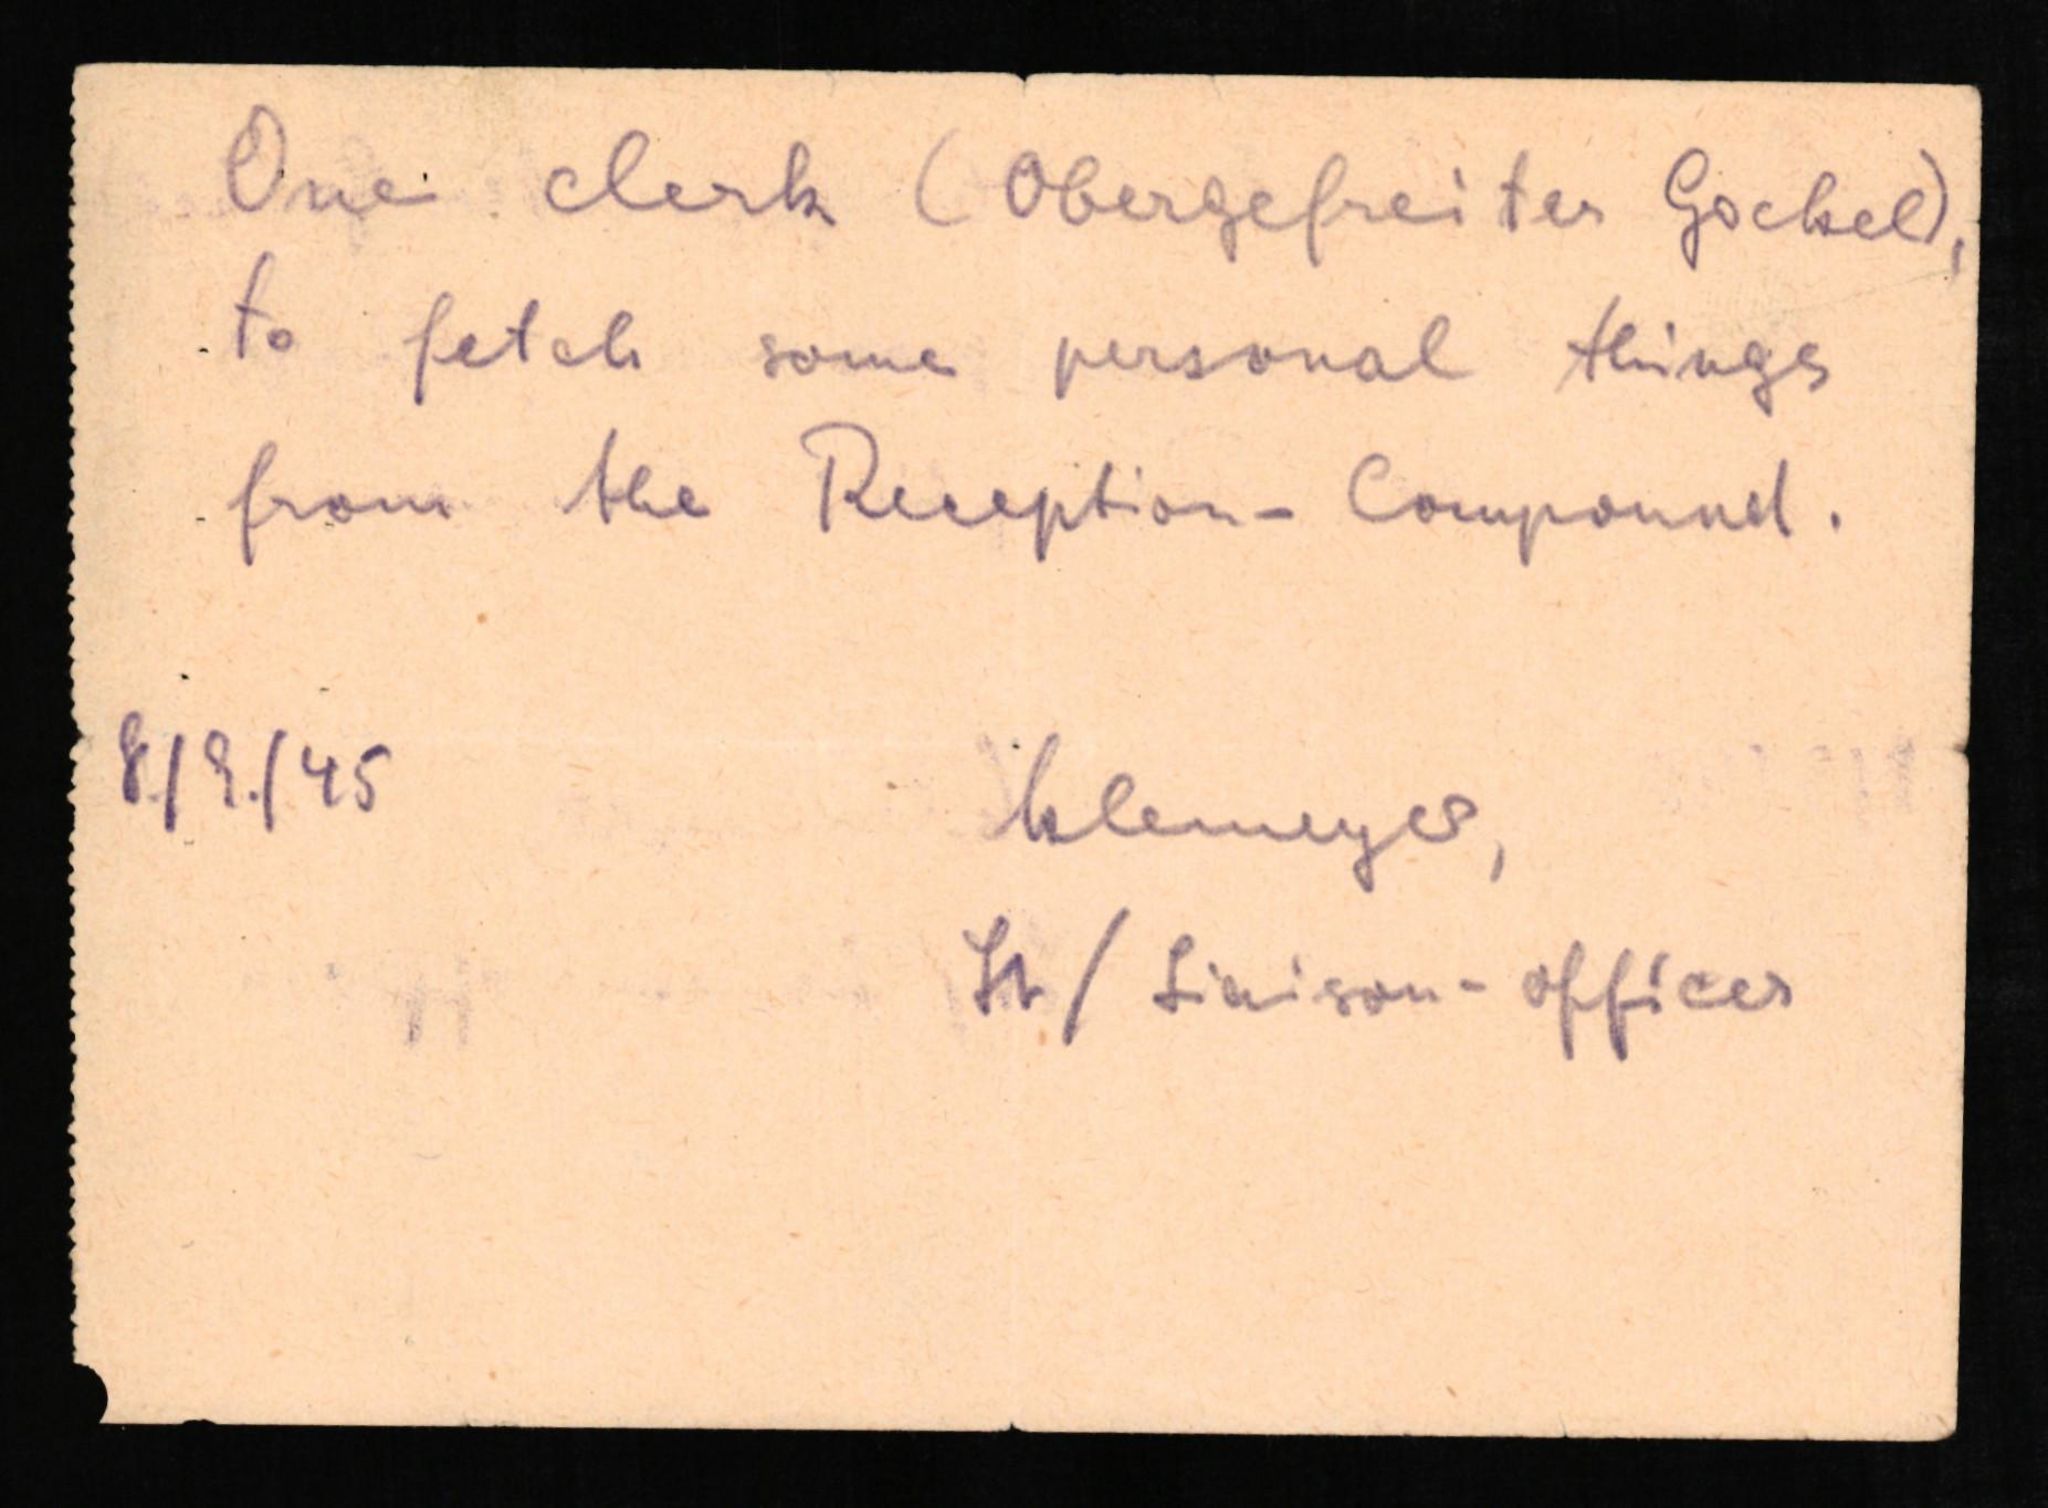 One clerk (Obergefreiter Gockel),
to fetch some personal things
from the Reception-Compound.
8./9./45
Klemeyer,
Lt / Liaison-officer